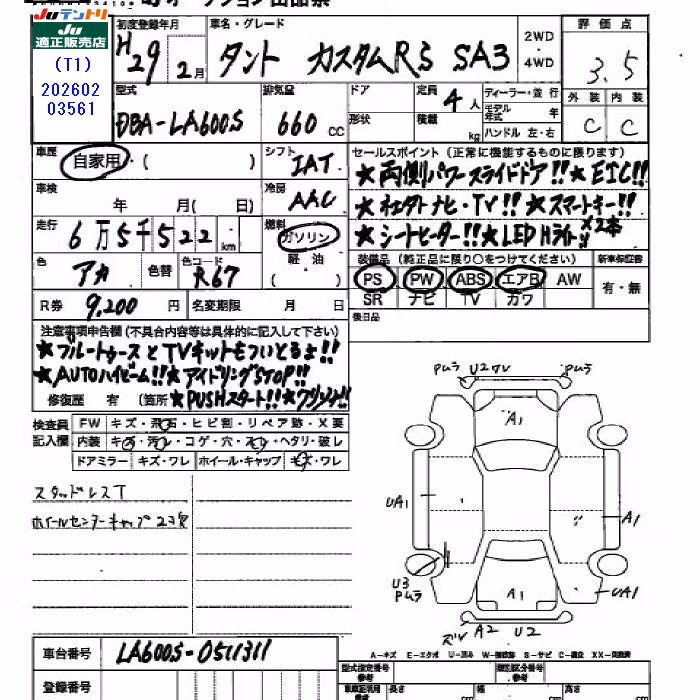 Juテントリ
Ju
適正販売店
(T1)
202602
03561
初度登録年月
H29 2月
車名・グレード
タント カスタムRS SA3
2WD
・
4WD
評価点
3.5
外装 内装
C C
型式
DBA-LA600S
排気量
660 cc
ドア
形状
定員 4人
積載 kg
ディーラー・並行
モデル年式 年
ハンドル 左・右
車歴
自家用・( )
シフト
IAT
セールスポイント(正常に機能するものに限ります)
★両側パワースライドドア!!★ETC!!
車検
年 月( 日)
冷房
AAC
★ナビ・TV!!★スマートキー!!
走行
6万5千522km
燃料
ガソリン
軽油
( )
★シートヒーター!!★LEDHライト×2本
色
アカ
色替
色コード
R67
装備品(純正品に限り○をつけてください)
新車保証書
PS PW ABS エアB AW
SR ナビ TV カワ
有・無
R券 9,200円
名変期限 月 日
後日品
注意事項申告欄(不具合内容等は具体的に記入して下さい)
★ブルートゥースとTVキットもついとるよ!!
★AUTOハイビーム!!★アイドリングSTOP!!
修復歴 有 (箇所 ★PUSHスタート!!★クリソナ!!
検査員記入欄
FW キズ・飛石・ヒビ割・リペア跡・X要
内装 キズ・汚れ・コゲ・穴・スレ・ヘタリ・破レ
ドアミラー キズ・ワレ ホイール・キャップ キズ・ワレ
スタッドレスT
ホイールセンターキャップ2コ欠
Pムラ U2ワレ Pムラ
A1
UA1
A1
U3
Pムラ
A1
UA1
ズレ A2 U2
A-キズ E-エクボ
車台番号 LA600S-0511311
登録番号
型式指定番号
類別区分番号
長さ 幅 高さ